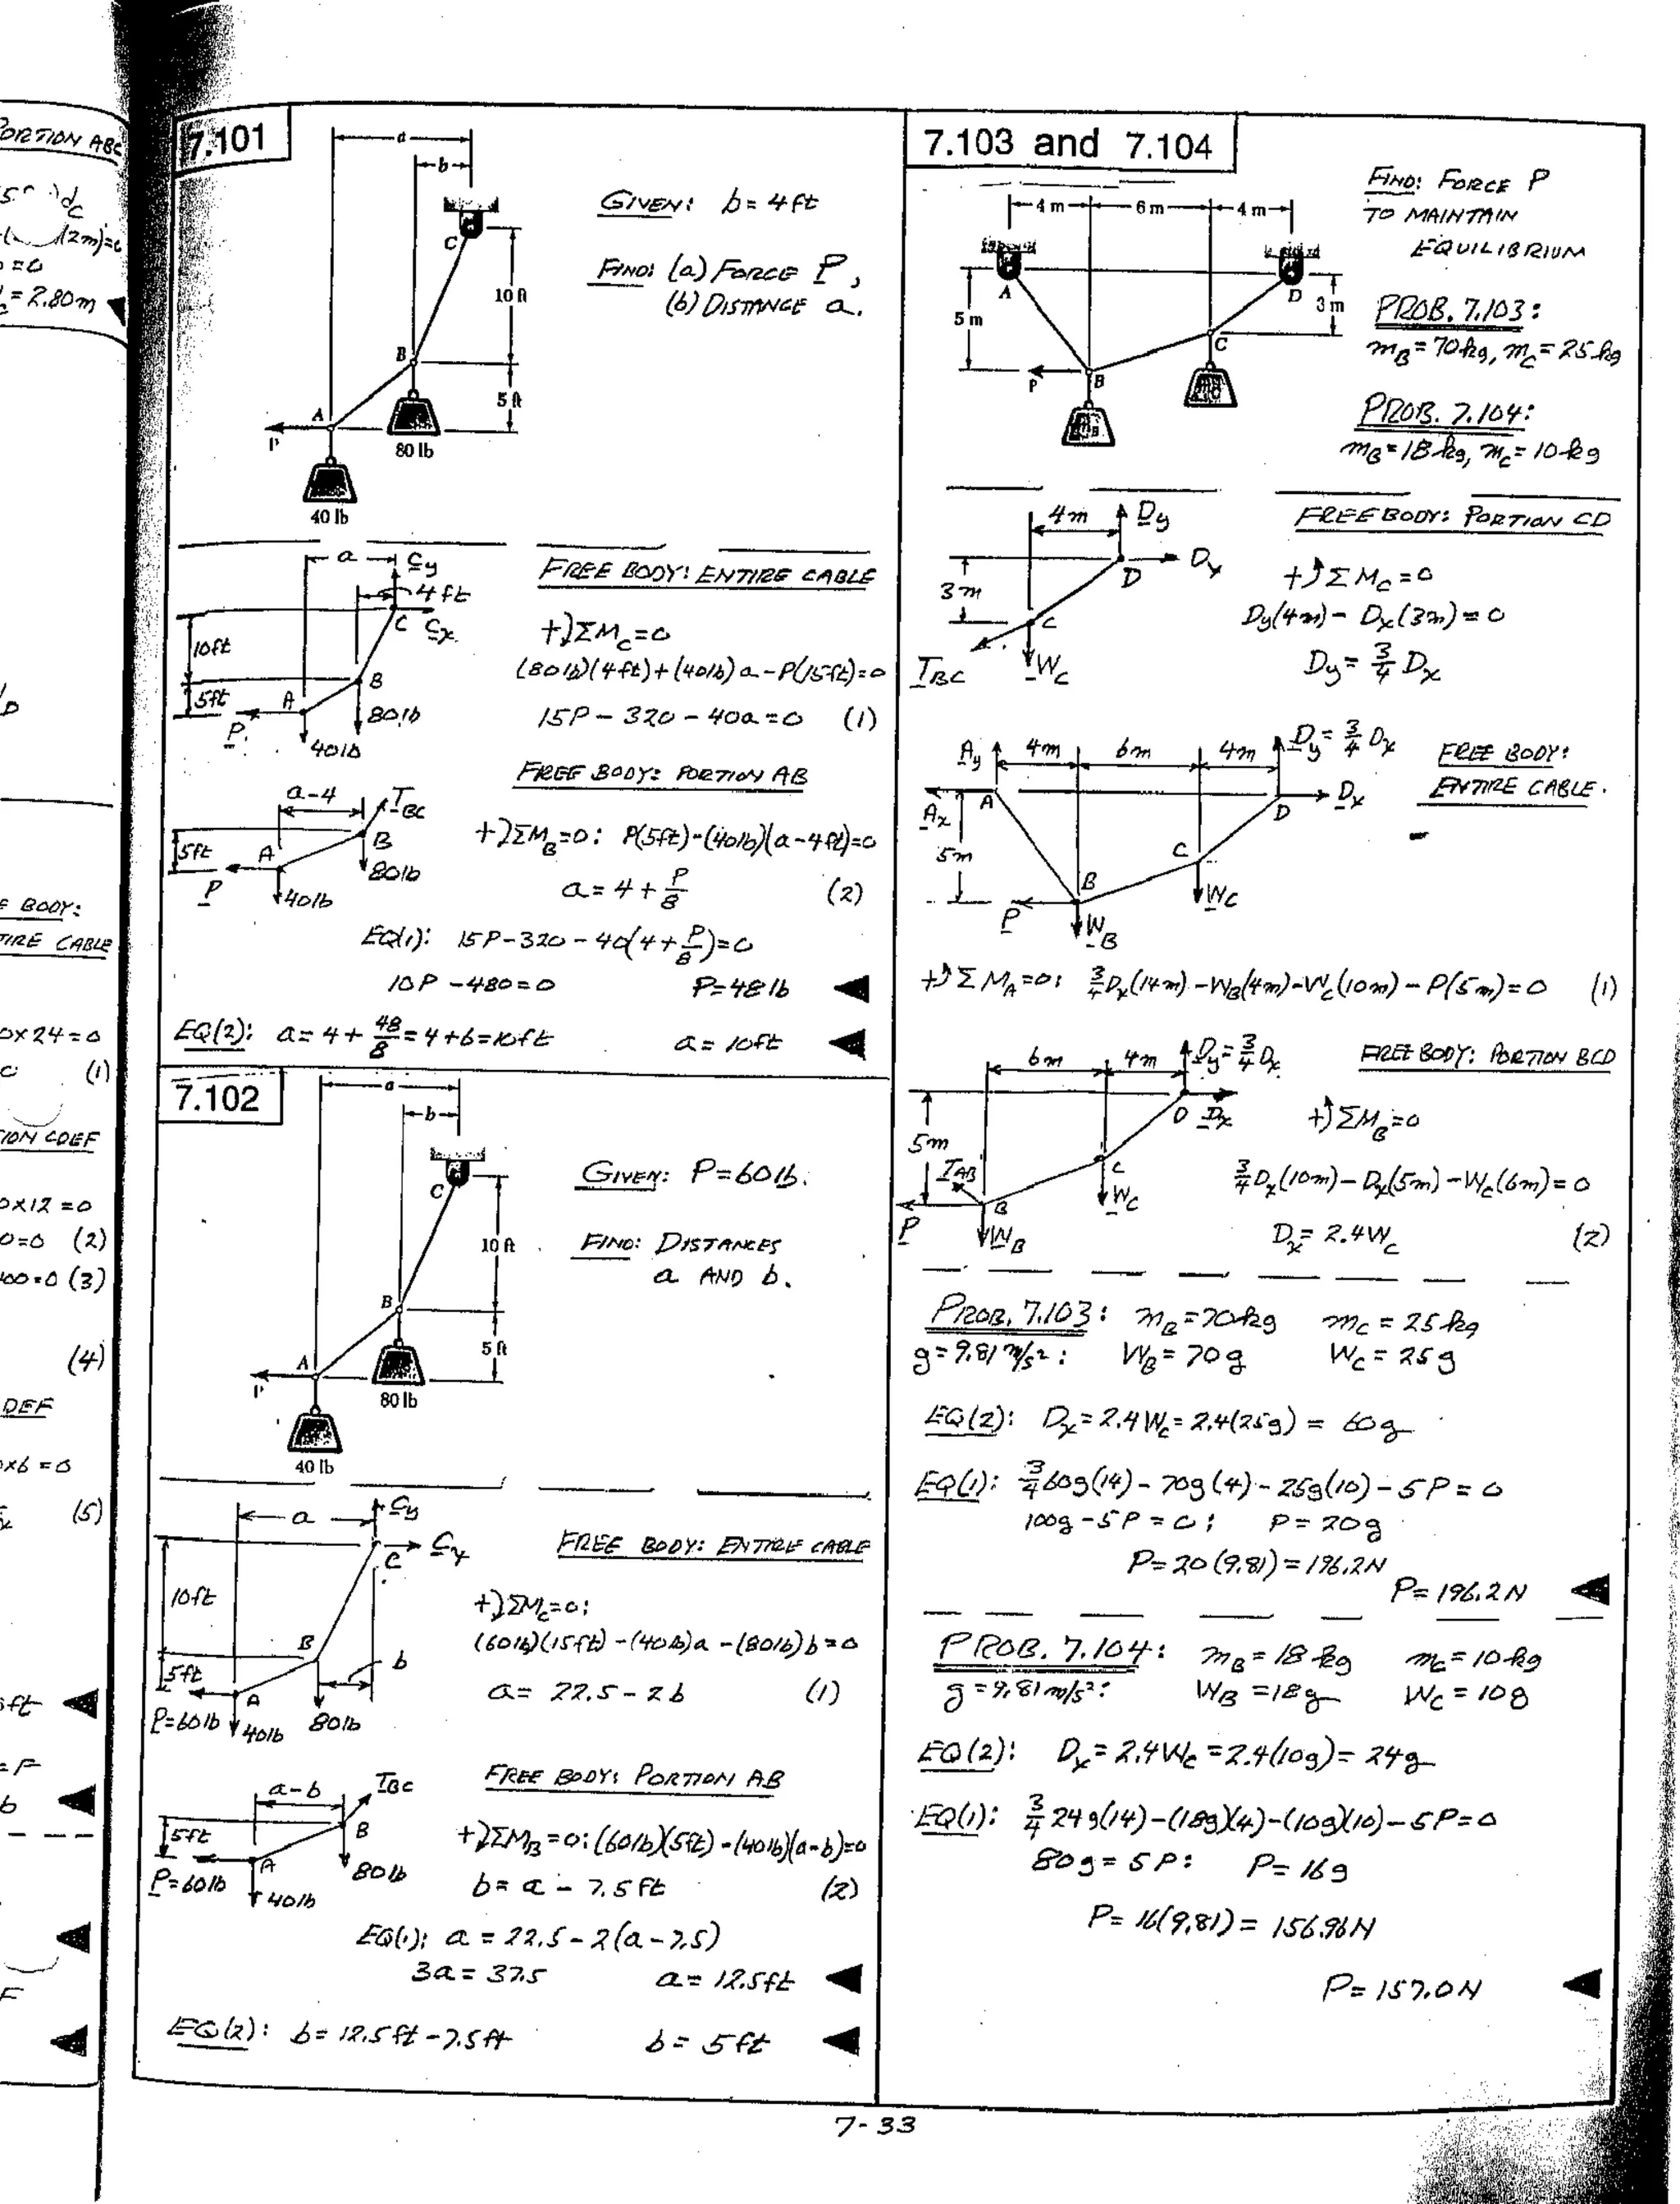 PORTION ABC
=2.80m
E BODY:
TIRE CABLE
0x24=0
(1)
TION CDEF
0x12=0
0=0 (2)
400=0 (3)
(4)
DEF
0x6=0
(5)
7.101
a
b
C
10 ft
B
5 ft
A
P
80 lb
40 lb
GIVEN: b=4ft
FIND: (a) FORCE P,
(b) DISTANCE a.
a
Cy
4ft
C Cx
10ft
B
5ft
A
P
80lb
40lb
FREE BODY: ENTIRE CABLE
+)ΣMc=0
(80lb)(4ft)+(40lb)a-P(15ft)=0
15P-320-40a=0 (1)
FREE BODY: PORTION AB
a-4
TBC
B
5ft
A
80lb
P
40lb
+)ΣMB=0: P(5ft)-(40lb)(a-4ft)=0
a=4+P/8 (2)
EQ(1): 15P-320-40(4+P/8)=0
10P-480=0 P=48lb
EQ(2): a=4+48/8=4+6=10ft a=10ft
7.102
a
b
C
10 ft
B
5 ft
A
P
80 lb
40 lb
GIVEN: P=60lb.
FIND: DISTANCES
a AND b.
a
Cy
C Cx
10ft
B
b
5ft
A
P=60lb 40lb 80lb
FREE BODY: ENTIRE CABLE
+)ΣMc=0:
(60lb)(15ft)-(40lb)a-(80lb)b=0
a= 22.5-2b (1)
FREE BODY: PORTION AB
a-b
TBC
B
5ft
A
80lb
P=60lb
40lb
+)ΣMB=0: (60lb)(5ft)-(40lb)(a-b)=0
b= a - 7.5ft (2)
EQ(1): a = 22.5-2(a-7.5)
3a=37.5 a=12.5ft
EQ(2): b=12.5ft-7.5ft b= 5ft
7.103 and 7.104
4 m 6 m 4 m
A
D
3 m
5 m
C
P
B
FIND: FORCE P
TO MAINTAIN
EQUILIBRIUM
PROB. 7.103:
mB=70kg, mc=25kg
PROB. 7.104:
mB=18kg, mc=10kg
4m Dy
D Dx
3m
C
TBC
Wc
FREE BODY: PORTION CD
+)ΣMc=0
Dy(4m)- Dx(3m)=0
Dy=3/4 Dx
Ay 4m 6m 4m Dy=3/4 Dx
A
D Dx
Ax
5m
C
B
Wc
P
WB
FREE BODY:
ENTIRE CABLE.
+)ΣMA=0: 3/4Dx(14m)-WB(4m)-Wc(10m)-P(5m)=0 (1)
6m 4m Dy=3/4Dx
D Dx
5m
TAB
C
Wc
B
P
WB
FREE BODY: PORTION BCD
+)ΣMB=0
3/4Dx(10m)-Dx(5m)-Wc(6m)=0
Dx=2.4Wc (2)
PROB. 7.103: mB=70kg mc=25kg
g=9.81 m/s²: WB=70g Wc=25g
EQ(2): Dx=2.4Wc=2.4(25g) = 60g
EQ(1): 3/4 60g(14)-70g(4)-25g(10)-5P=0
100g-5P=0; P=20g
P=20(9.81)=196.2N
P=196.2N
PROB. 7.104: mB=18kg mc=10kg
g=9.81m/s²: WB=18g Wc=10g
EQ(2): Dx=2.4Wc=2.4(10g)=24g
EQ(1): 3/4 24g(14)-(18g)(4)-(10g)(10)-5P=0
80g=5P: P=16g
P=16(9.81)=156.96N
P=157.0N
7-33